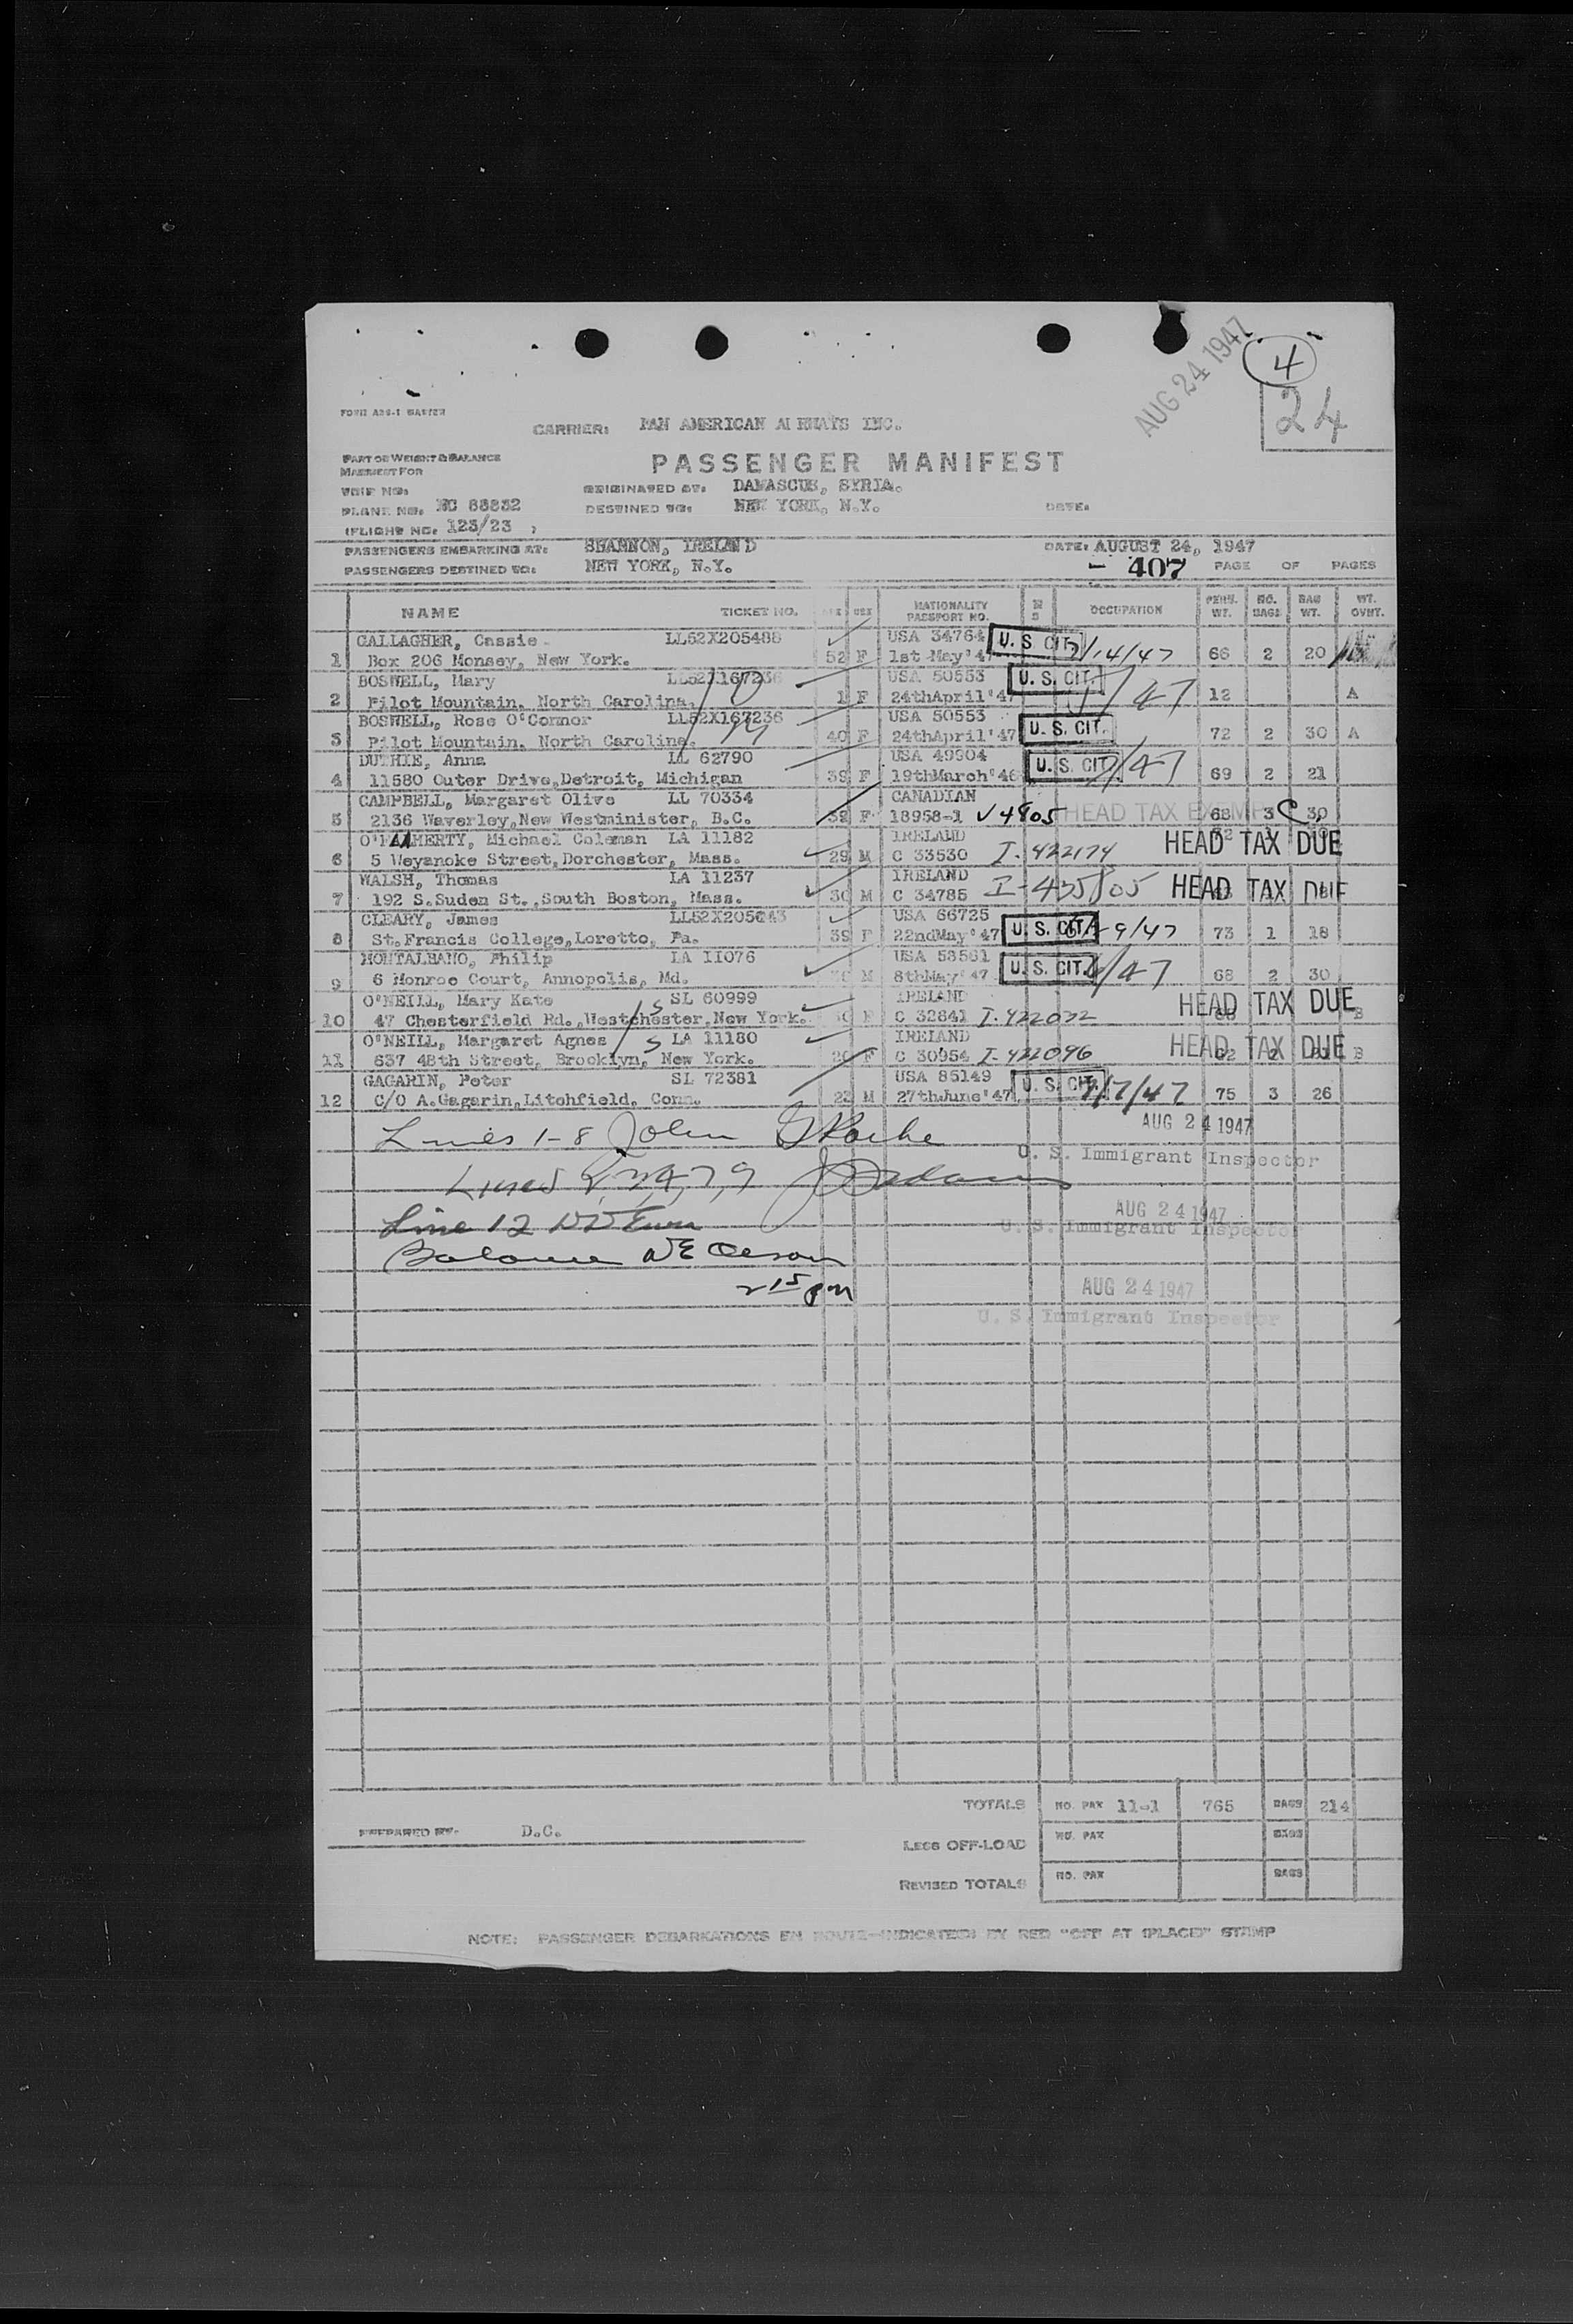 AUG 24 1947
4
24
CARRIER: PAN AMERICAN AIRWAYS INC.
PART OF WEIGHT & BALANCE
MANIFEST FOR
PASSENGER MANIFEST
TRIP NO:
ORIGINATED AT: DAMASCUS, SYRIA.
PLANE NO. NC 88832
DESTINED TO: NEW YORK, N.Y.
DATE:
(FLIGHT NO. 123/23 )
PASSENGERS EMBARKING AT: SHANNON, IRELAND
DATE: AUGUST 24, 1947
PASSENGERS DESTINED TO: NEW YORK, N.Y.
- 407 PAGE OF PAGES
NAME TICKET NO. AGE SEX NATIONALITY PASSPORT NO. OCCUPATION PERS. WT. NO. BAGS BAG WT. WT. OVHT.
GALLAGHER, Cassie LL52X205488 USA 34764 U. S. CIT.
1 Box 206 Monsey, New York. 52 F 1st May'47 7/14/47 66 2 20
BOSWELL, Mary LL52X167236 USA 50553 U. S. CIT.
2 Pilot Mountain, North Carolina. 1 F 24thApril'47 12 A
BOSWELL, Rose O'Connor LL52X167236 USA 50553 U. S. CIT.
3 Pilot Mountain, North Carolina. 40 F 24thApril'47 72 2 30 A
DUTHIE, Anna LL 62790 USA 49904 U. S. CIT.
4 11580 Outer Drive,Detroit, Michigan 39 F 19thMarch'46 69 2 21
CAMPBELL, Margaret Olive LL 70334 CANADIAN
5 2136 Waverley,New Westminister, B.C. F 18958-1 V4805 HEAD TAX EXEMPT 68 3 30
Michael Coleman LA 11182 IRELAND HEAD TAX DUE
6 5 Weyanoke Street,Dorchester, Mass. 29 M C 33530 I-422174
WALSH, Thomas LA 11237 IRELAND
7 192 S.Suden St.,South Boston, Mass. 30 M C 34785 HEAD TAX DUE
CLEARY, James LL52X205643 USA 66725
8 St.Francis College,Loretto, Pa. 39 22ndMay'47 U. S. CIT. 73 1 18
MONTALBANO, Philip LA 11076 USA 58561 U. S. CIT.
9 6 Monroe Court, Annopolis, Md. M 8thMay'47 68 2 30
O'NEILL, Mary Kate SL 60999 IRELAND
10 47 Chesterfield Rd.,Westchester,New York. F C 32841 I-422022 HEAD TAX DUE B
O'NEILL, Margaret Agnes LA 11180 IRELAND HEAD TAX DUE
11 637 48th Street, Brooklyn, New York. 20 F C 30954 I-422096 B
GAGARIN, Peter SL 72381 USA 85149 U. S. CIT.
12 C/O A.Gagarin,Litchfield, Conn. 23 M 27thJune'47 7/7/47 75 3 26
AUG 24 1947
Lines 1-8 John
U. S. Immigrant Inspector
Lines
AUG 24 1947
Line 12
U. S. Immigrant Inspector
Balance
2 15 pm
AUG 24 1947
U. S. Immigrant Inspector
TOTALS NO. PAX 11-1 765 BAGS 214
PREPARED BY. D.C.
LESS OFF-LOAD NO. PAX BAGS
REVISED TOTALS NO. PAX BAGS
NOTE: PASSENGER DEBARKATIONS EN ROUTE—INDICATED BY RED "OFF AT (PLACE)" STAMP